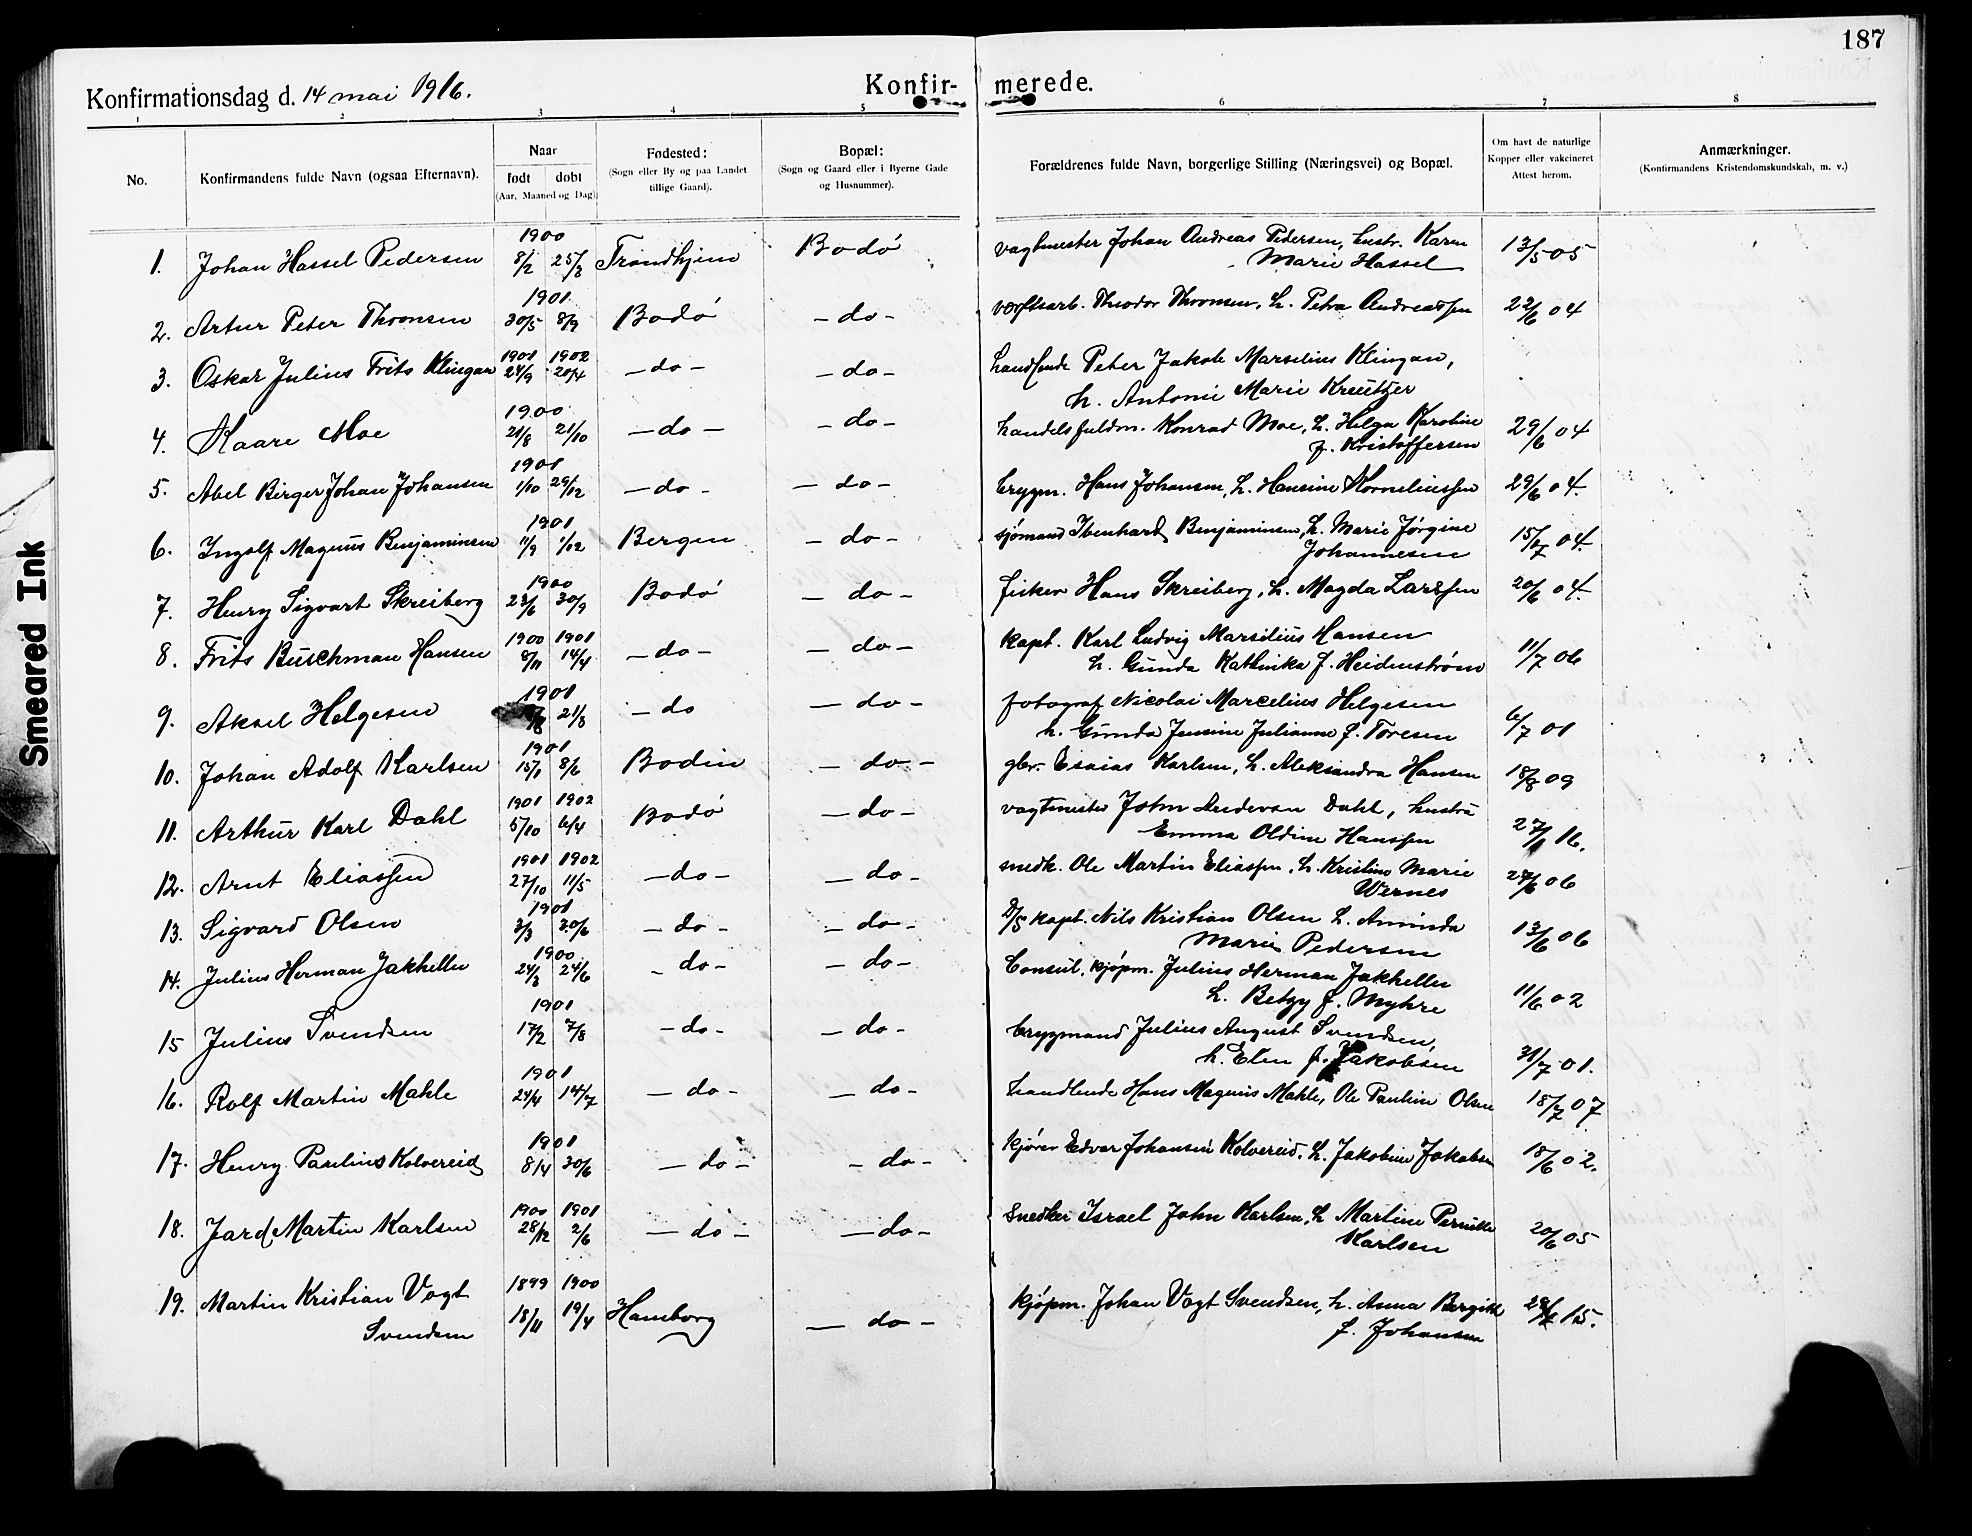 187
Konfirmationsdag d. 14 mai 1916. Konfir- merede.
1 2 3 4 5 6 7 8
No. Konfirmandens fulde Navn (ogsaa Efternavn). Naar født døbt (Aar, Maaned og Dag) Fødested: (Sogn eller By og paa Landet tillige Gaard). Bopæl: (Sogn og Gaard eller i Byerne Gade og Husnummer). Forældrenes fulde Navn, borgerlige Stilling (Næringsvei) og Bopæl. Om havt de naturlige Kopper eller vakcineret Attest herom. Anmærkninger. (Konfirmandens Kristendomskundskab, m. v.)
1900
1. Johan Hassel Pedersen 8/2 25/3 Trondhjem Bodø vagtmester Johan Andreas Pedersen, hustr. Karen 13/5 05
Marie Hassel
1901
2. Artur Peter Thronsen 30/5 8/9 Bodø - do - verftsarb. Theodor Thronsen, h. Petra Andreassen 22/6 04
1901 1902
3. Oskar Julius Frits Klingan 24/9 20/4 - do - - do - handlende Peter Jakob Marselius Klingan,
h. Antonie Marie Kreutzer
1900
4. Kaare Moe 21/8 21/10 - do - - do - handelsfuldm. Konrad Moe, h. Helga Karoline 29/6 04
f. Kristoffersen
1901
5. Abel Birger Johan Johansen 1/10 29/12 - do - - do - brygm. Hans Johansen, h. Hansine Korneliussen 29/6 04.
1901
6. Ingolf Magnus Benjaminsen 11/9 1/12 Bergen - do - sjømand Ibenhard Benjaminsen, h. Marie Jørgine 15/7 04.
Johannesen
1900
7. Henry Sigvart Skreiberg 23/6 30/9 Bodø - do - fisker Hans Skreiberg, h. Magda Larssen 20/6 04.
1900 1901
8. Frits Buschman Hansen 8/11 14/4 - do - - do - kapt. Karl Ludvig Marselius Hansen 11/7 06
h. Gunda Kathinka f. Heidenstrøm
1901
9. Aksel Helgesen 21/8 - do - do - fotograf Nicolai Marcelius Helgesen 6/7 01
h. Gunda Jensine Julianne f. Toresen
1901
10. Johan Adolf Karlsen 15/1 8/6 Bodin - do - gbr. Esaias Karlsen, h. Aleksandra Hansen 18/8 09
1901 1902
11. Arthur Karl Dahl 5/10 6/4 Bodø - do - vagtmester John Andersen Dahl, hustru 27/ 16.
Emma Oldine Hanssen
1901 1902
12. Arnt Eliassen 27/10 11/5 - do - - do - snedk. Ole Martin Eliassen, h. Kristine Marie 27/6 06
Wernes
1901
13. Sigvard Olsen 3/3 30/6 - do - - do - D/S kapt. Nils Kristian Olsen h. Aminda 13/6 06
Marie Pedersen
1900
14. Julius Herman Jakhelln 24/3 24/6 - do - - do - Consul, kjøpm. Julius Herman Jakhelln
h. Betzy f. Myhre 11/6 02
1901
15 Julius Svendsen 17/2 7/8 - do - - do - brygmand Julius August Svendsen,
h. Elen f. Jakobsen 31/7 01.
1901
16. Rolf Martin Mahle 24/4 14/7 - do - - do - handlende Hans Magnus Mahle, Ole Pauline Olsen 18/7 07
1901
17. Henry Paulius Kolvereid 8/4 30/6 - do - - do - kjører Edvar Johansen Kolvereid, h. Jakobine Jakobsen 18/6 02.
1900 1901
18. Jard Martin Karlsen 28/12 2/6 - do - - do - Snedker Israel John Karlsen, h. Martine Pernille 20/6 05
Karlsen
1899 1900
19. Martin Kristian Vogt 18/11 19/4 Hamborg - do - kjøpm. Johan Vogt Svendsen, h. Anna Bergitte 15.
Svendsen f. Johansen
Smeared Ink